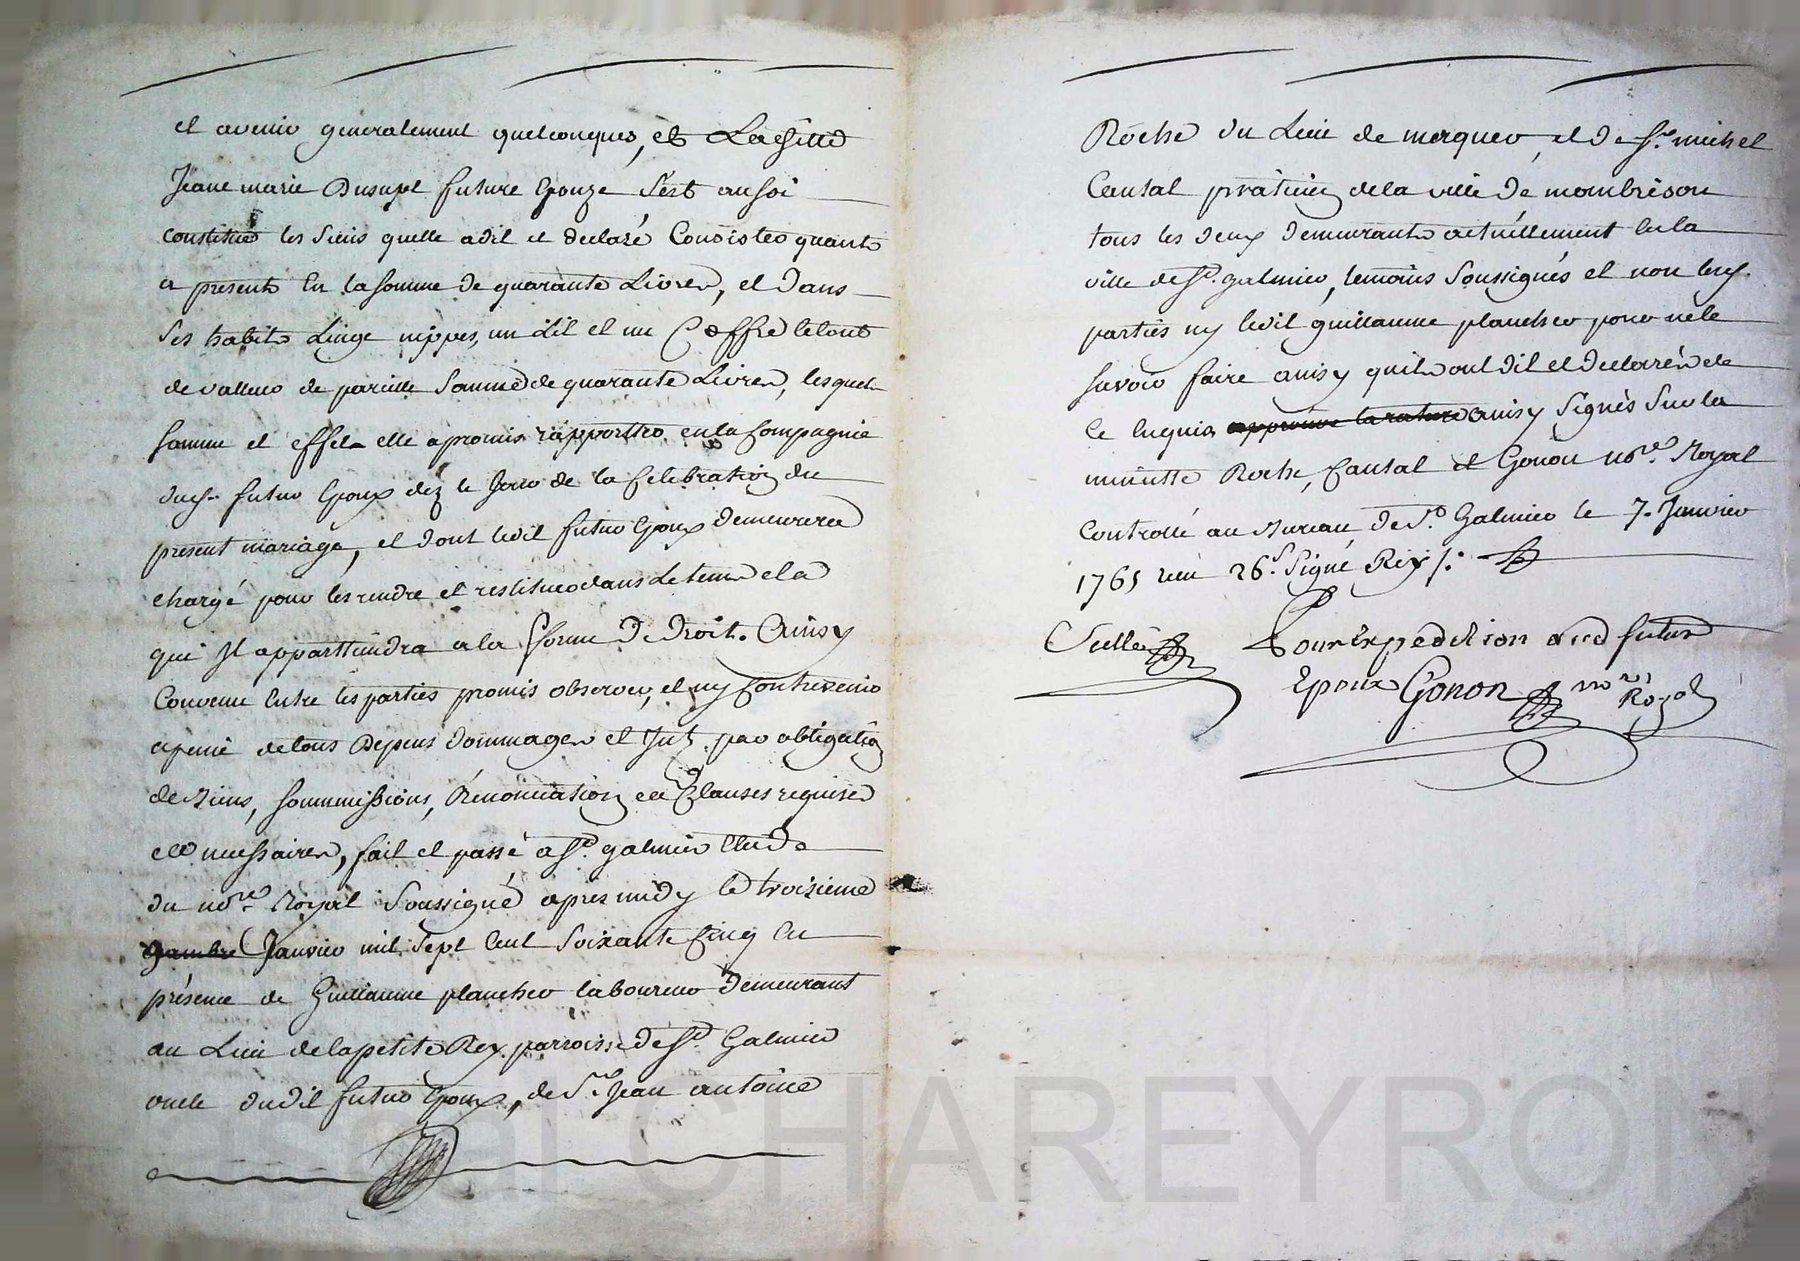 et avenir generalement quelconques, et Laditte
Jeane marie Dusupt future Epouze s'est aussi
constituée les siens quelle a dit et declaré Consister quant
a present En la somme de quarante Livres, et dans
ses habits Linge nippes, un Lit et un Coffre le tout
de valleur de pareille somme de quarante Livres, lesquels
somme et effets elle a promis rapportter en la Compagnie
dudt futur Epoux dez le Jour de la Celebration du
present mariage, et dont ledit futur Epoux demeurera
chargé pour les rendre et restituer dans Le tems et a
qui Il apparttiendra a la forme De droit. Ainsy
Convenu Entre les parties promis observer, et ny Contrevenir
a peine de tous Depens dommages et Int. par obligation
de Biens, sommissions, Rénonciation et Clauses requises
et necessaires, fait et passé a St. galmier Etude
du nore. Royal Soussigné apres midy le troisieme
Janvier mil sept Cent soixante Cinq En
présence de Guillaume plancher laboureur demeurant
au Lieu de la petite Rey parroisse de St. Galmier
oncle dudit futur Epoux, de Sr. Jean antoine
Roche du Lieu de merquer, et de Sr. michel
Cantal praticien de la ville de mombrison
tous les deux demeurants actuéllement En la
ville de St. galmier, temoins Soussignés et non les
parties ny ledit guillaume plancher pour ne le
savoir faire ainsy quils ont dit et declarés de
Ce Enquis approuvé la rature ainsy signés sur la
minutte Roche, Cantal et Gonon nore. Royal
Controllé au Bureau de St. Galmier le 7. Janvier
1765 reçu 26.s Signé Rey /.
Scellé Pour Expedition aud futur
Epoux Gonon nore Royal
CHAREYRON